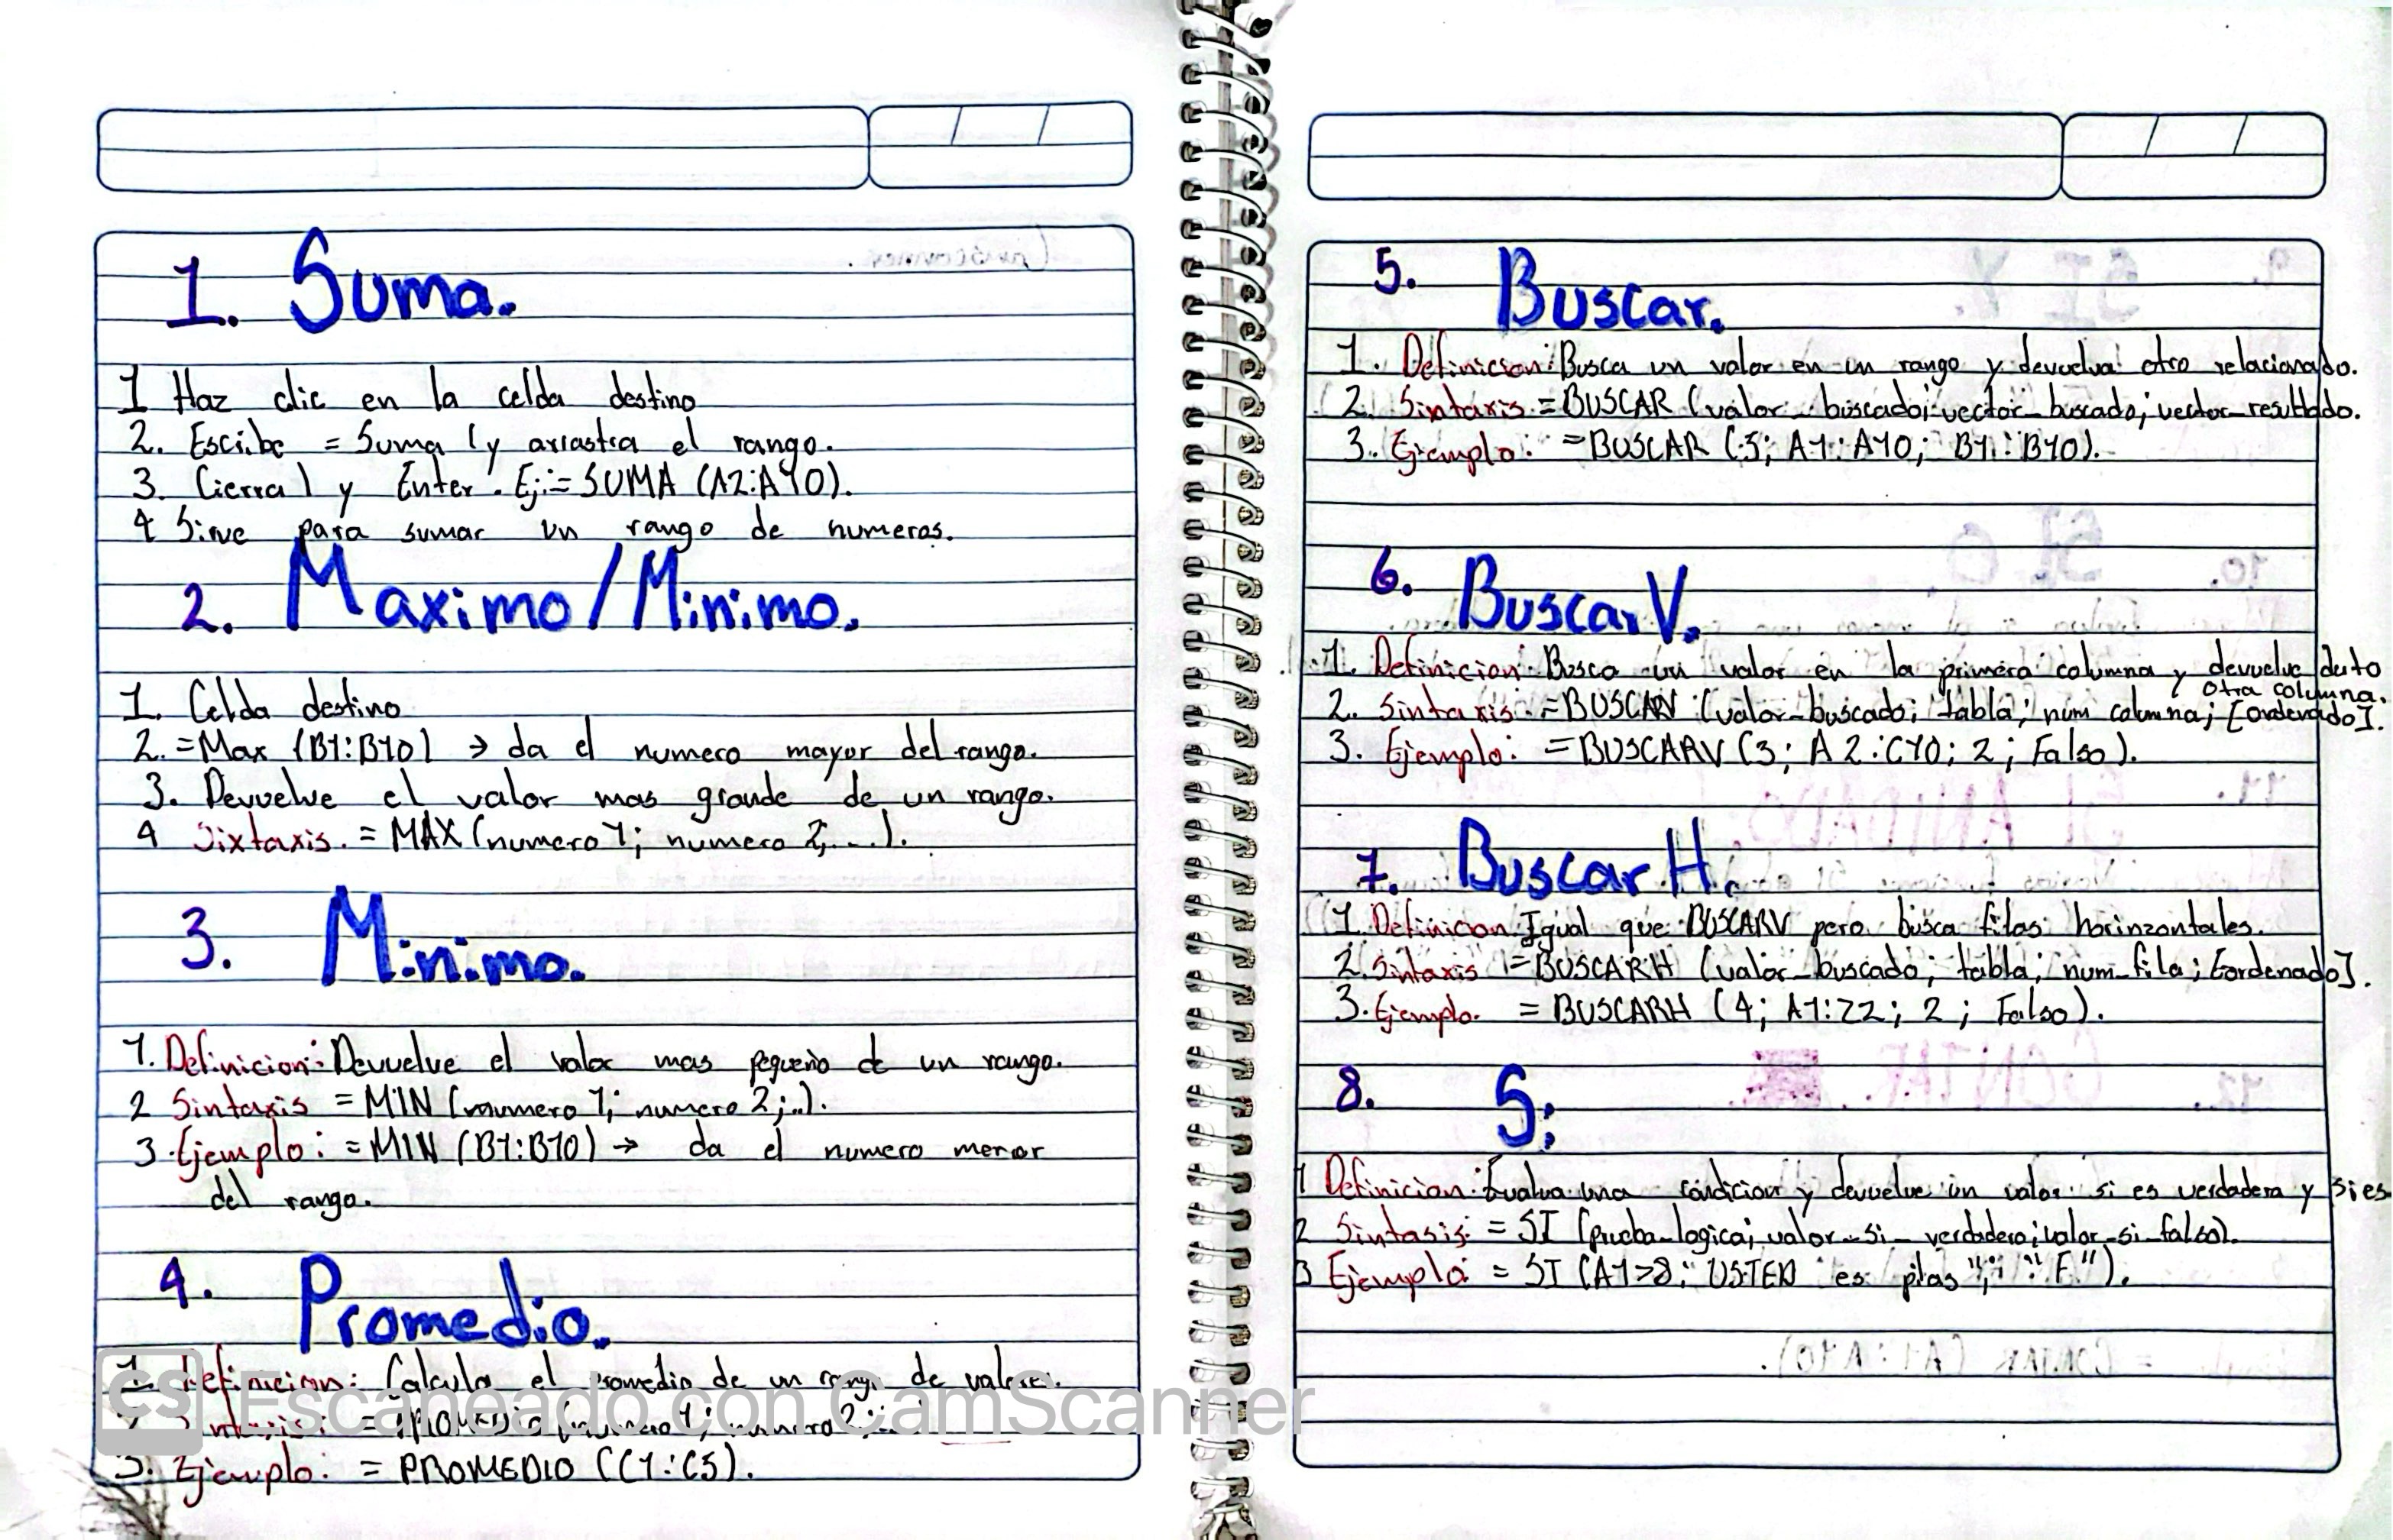 1. Suma.
1 Haz clic en la celda destino
2. Escibe = Suma (y arrastra el rango.
3. Cierra) y Enter. Ej:= SUMA (A2:A10).
4 Sirve para sumar un rango de numeros.
2. Maximo/Minimo.
1. Celda destino
2. =Max (B1:B10) → da el numero mayor del rango.
3. Devuelve el valor mas grande de un rango.
4 Sixtaxis. = MAX (numero 1; numero 2; ...).
3. Minimo.
1. Definicion: Devuelve el valor mas pequeño de un rango.
2 Sintaxis = MIN (numero 1; numero 2; ..).
3. Ejemplo: = MIN (B1:B10) → da el numero menor
del rango.
4. Promedio.
1. Definicion: Calcula el promedio de un rango de valores.
= PROMEDIO (numero 1; numero 2; ...
3. Ejemplo: = PROMEDIO (C1:C5).
5. Buscar.
1. Definicion: Busca un valor en un rango y devuelva otro relacionado.
2. Sintaxis = BUSCAR (valor_buscado; vector_buscado; vector_resultado.
3. Ejemplo: =BUSCAR (5; A1:A10; B1:B10).
6. BuscarV.
1. Definicion: Busca un valor en la primera columna y devuelve dato
otra columna.
2. Sintaxis =BUSCARV (valor_buscado; tabla; num columna; [ordenado].
3. Ejemplo: =BUSCARV (3; A2:C10; 2; Falso).
7. Buscar H.
1. Definicion: Igual que BUSCARV pero busca filas horinzontales.
2. Sintaxis =BUSCARH (valor_buscado; tabla; num_fila; [ordenado].
3. Ejemplo. = BUSCARH (4; A1:Z2; 2; Falso).
8. Si
1 Definicion: Evalua una condicion y devuelve un valor si es verdadera y si es
2 Sintasis: = SI (prueba_logica; valor_si_verdadero; valor_si_falso).
3 Ejemplo = SI (A1>8; "USTED es pilas"; "F").
CS Escaneado con CamScanner